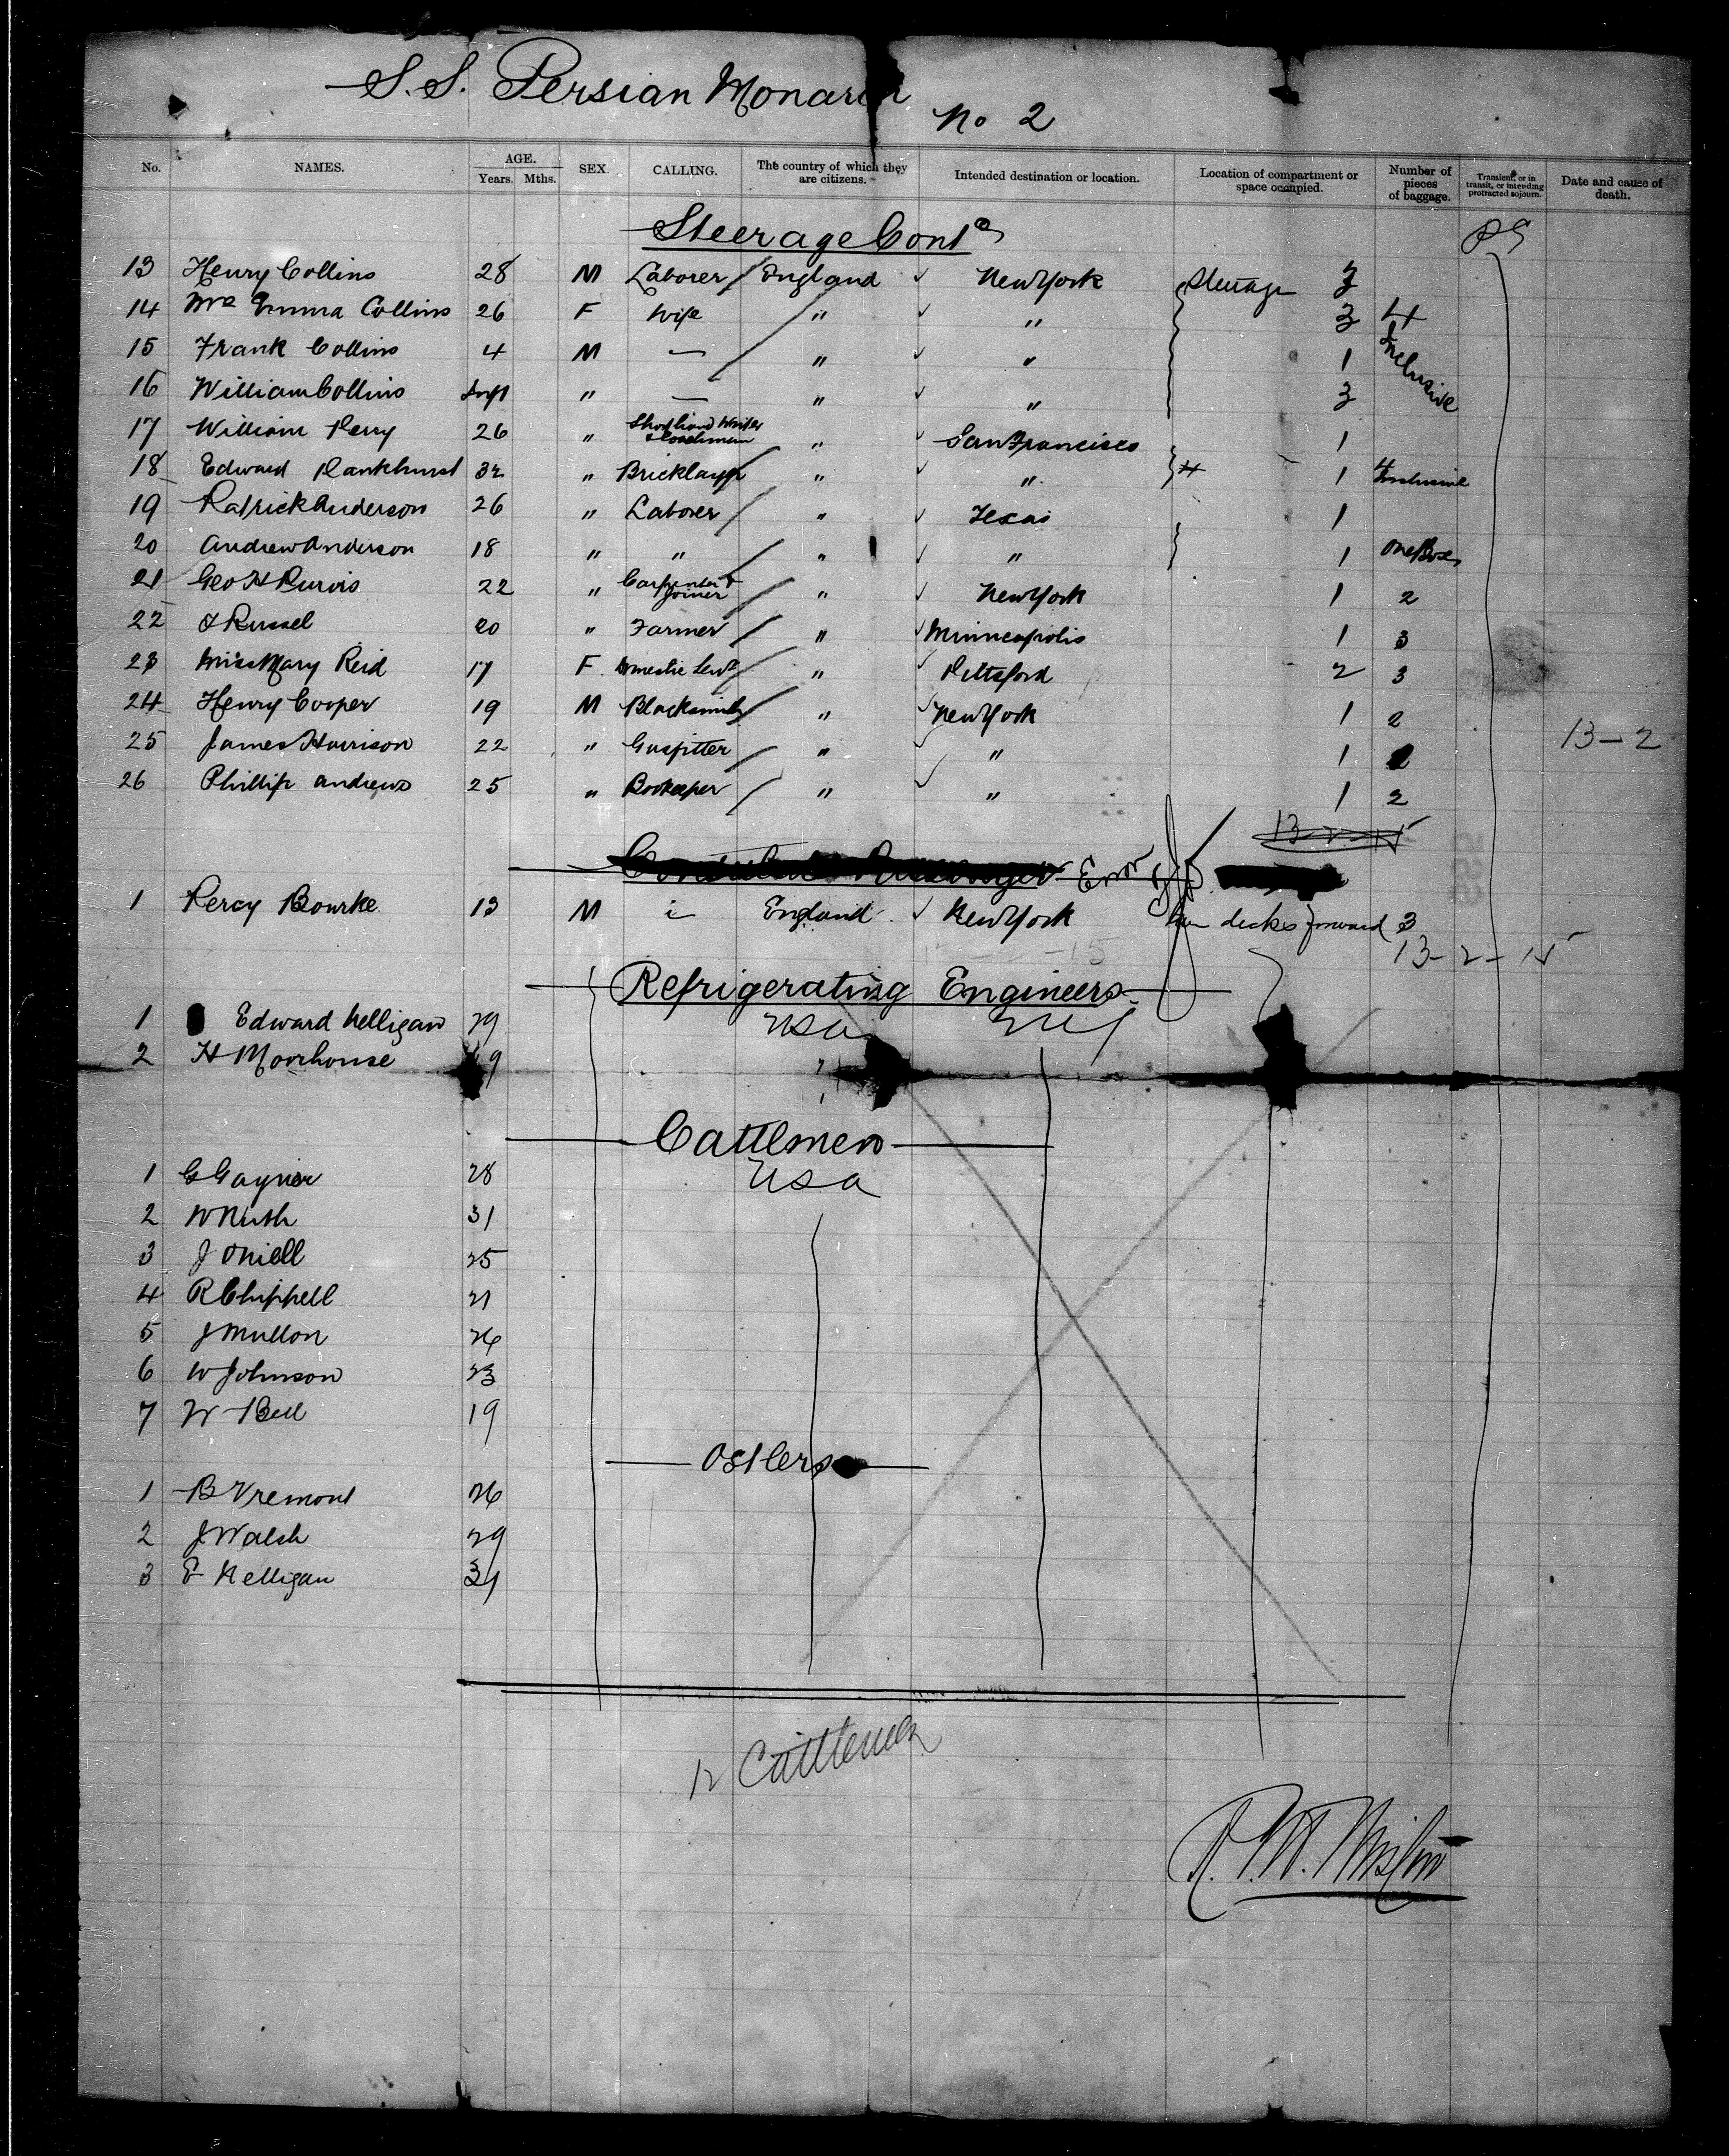 S.S. Persian Monarch
No 2
No. NAMES. AGE. Years. Mths. SEX. CALLING. The country of which they are citizens. Intended destination or location. Location of compartment or space occupied. Number of pieces of baggage. Transient, or in transit, or intending protracted sojourn. Date and cause of death.
Steerage Contd
13 Henry Collins 28 M Laborer England New York Steerage 3
14 Mrs Emma Collins 26 F Wife " " 3 4
15 Frank Collins 4 M — " " 1 Inclusive
16 William Collins Inft " — " " 3
17 William Perry 26 " Shorthand Writer & Coachman " San Francisco 1
18 Edward Pankhurst 32 " Bricklayer " " 1 4 Inclusive
19 Patrick Anderson 26 " Laborer " Texas 1
20 Andrew Anderson 18 " " " " 1 One Box
21 Geo H Purvis 22 " Carpenter & Joiner " New York 1 2
22 J Russel 20 " Farmer " Minneapolis 1 3
23 Miss Mary Reid 17 F Domestic Servt " Pittsford 2 3
24 Henry Cooper 19 M Blacksmith " New York 1 2
25 James Harrison 22 " Gasfitter " " 1
13-2
26 Phillip Andrews 25 " Bookeeper " " 1 2
13-2-15
Error
1 Percy Bourke 13 M England New York decks forward 3
13-2-15
Refrigerating Engineers
1 Edward Kelligan 29 USA
2 H Moorhouse 9 "
Cattlemen
1 G Gaynor 28 USA
2 W Ruth 31
3 J ONiell 25
4 R Chippell 21
5 J Mullon 26
6 W Johnson 23
7 W Bell 19
Ostlers
1 B Vremont 26
2 J Walsh 29
3 E Kelligan 31
12 Cattlemen